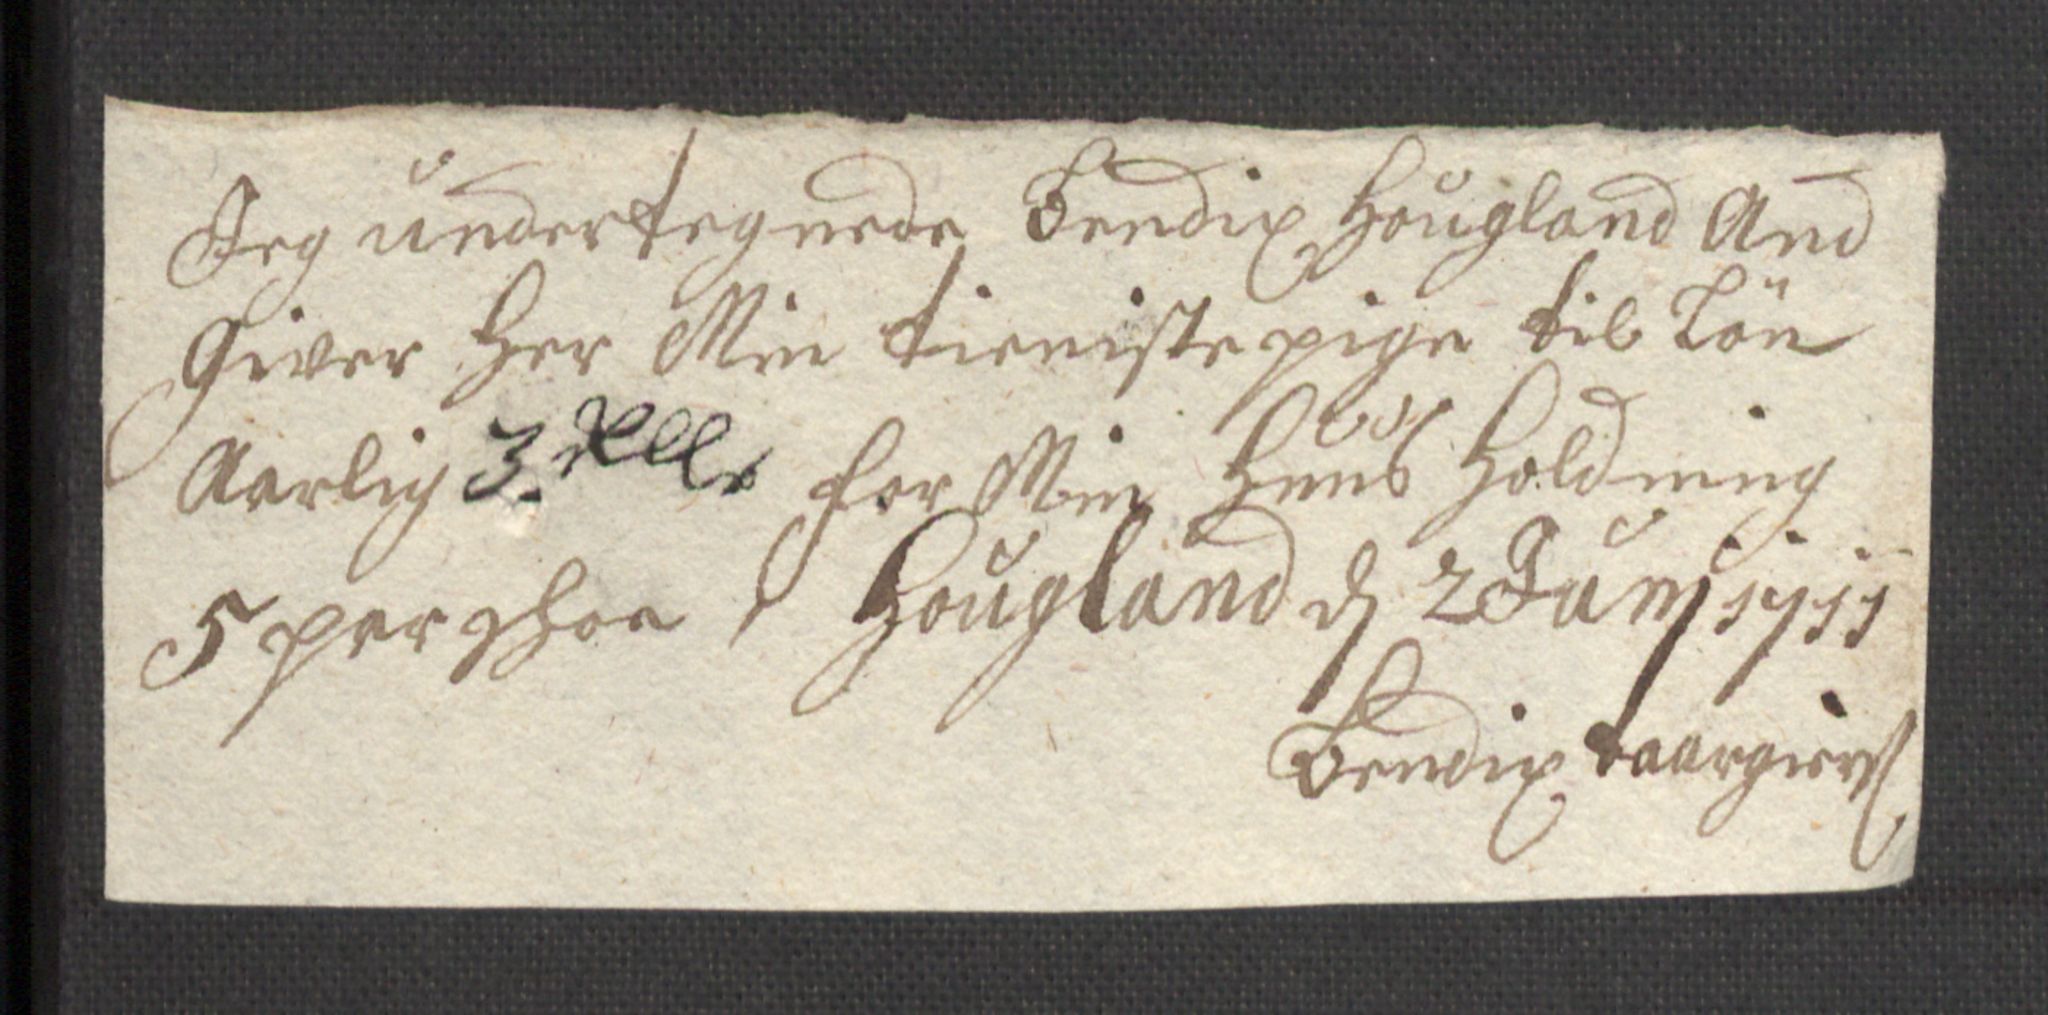 Jeg undertegnede Bendix Hougland And
Giver Her Min tieniste pige til Lön
Aarlig 3 Rdlr for Min Huus Holdning
5 par Shoe / Hougland d 2 Junj 1711
Bendix